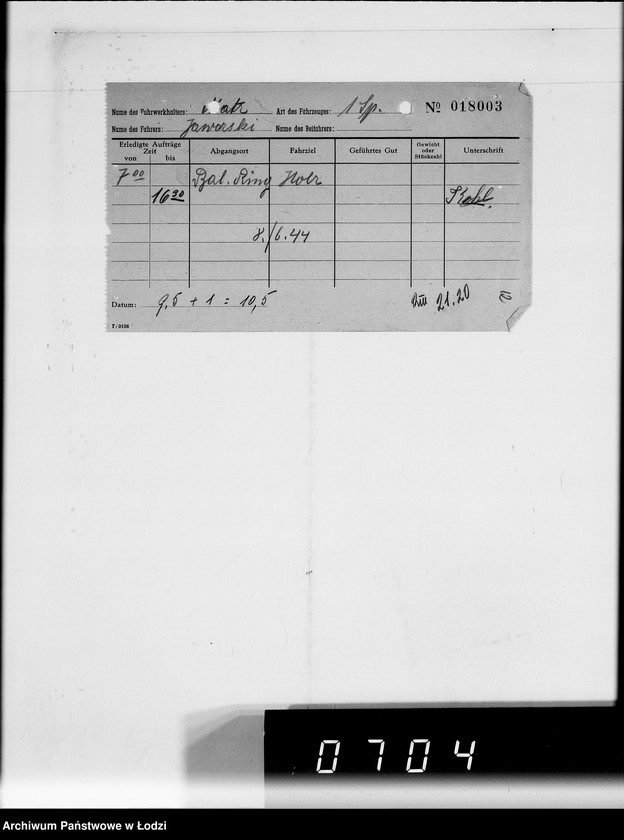 Name des Fuhrwerkhalters: Art des Fahrzeuges: 1 Sp. № 018003
Name des Fahrers: Jaworski Name des Beifahrers:
Erledigte Aufträge
Zeit
von bis Abgangsort Fahrziel Geführtes Gut Gewicht oder Stückzahl Unterschrift
7 00 Bal. Ring Holz
16 30
8./6.44
Datum: 9,5 + 1 = 10,5 21.20
T/0106
0704
Archiwum Państwowe w Łodzi